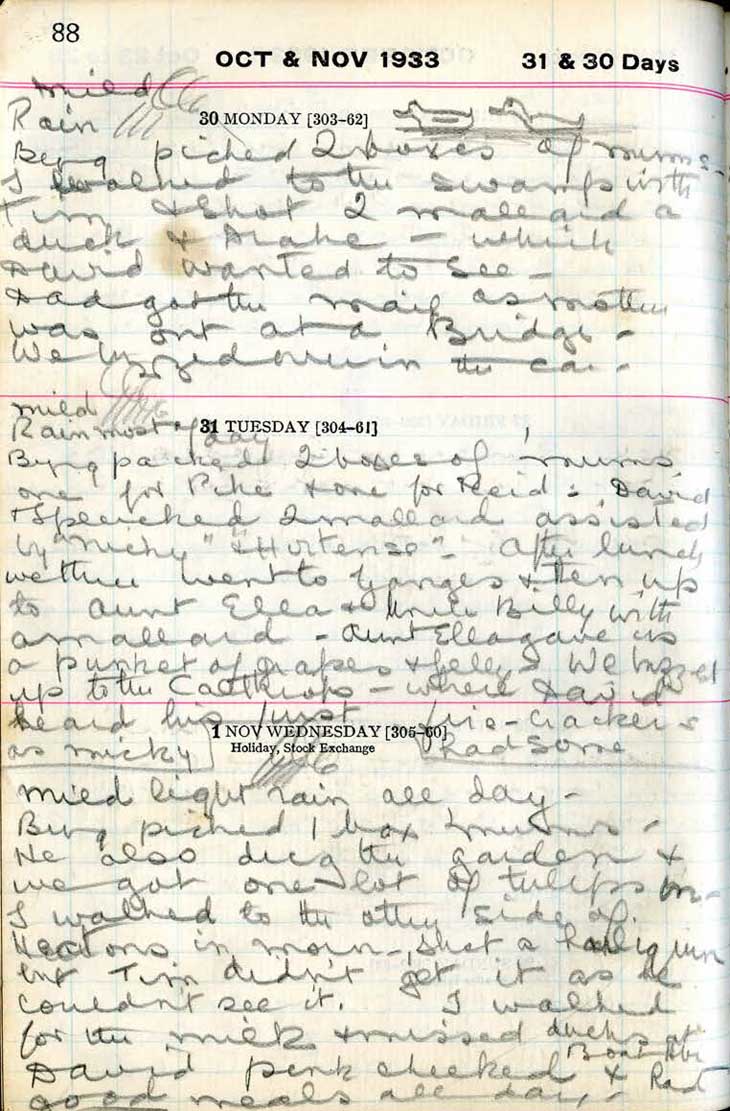 88
OCT & NOV 1933 31 & 30 Days
mild
Rain
30 MONDAY [303-62]
Byng picked 2 boxes of mums -
I walked to the swamp with
Tim & shot 2 mallard a
duck & drake - which
David wanted to see -
Dad got the mail as mother
was out at a Bridge -
We in the car -
mild
Rain most of day
31 TUESDAY [304-61]
Byng packed 2 boxes of mums
one for Pike & one for Reid : David
& I picked 2 mallard assisted
by "Micky" & "Hortense" - After lunch
we three went to Ganges & then up
to Aunt Ella & Uncle Billy with
a mallard - Aunt Ella gave us
a punket of grapes & jelly & We buzzed
up to the Calthrops - where David
heard his first fire-crackers
as Micky had some
1 NOV WEDNESDAY [305-60]
Holiday, Stock Exchange
mild light rain all day -
Byng picked 1 box mums -
He also dug the garden &
we got one lot of tulips in -
I walked to the other side of
in morn - shot a harlequin
but Tim didn't get it as he
couldn't see it. I walked
for the milk & missed ducks at
Boat
David pink cheeked & had
good meals all day -